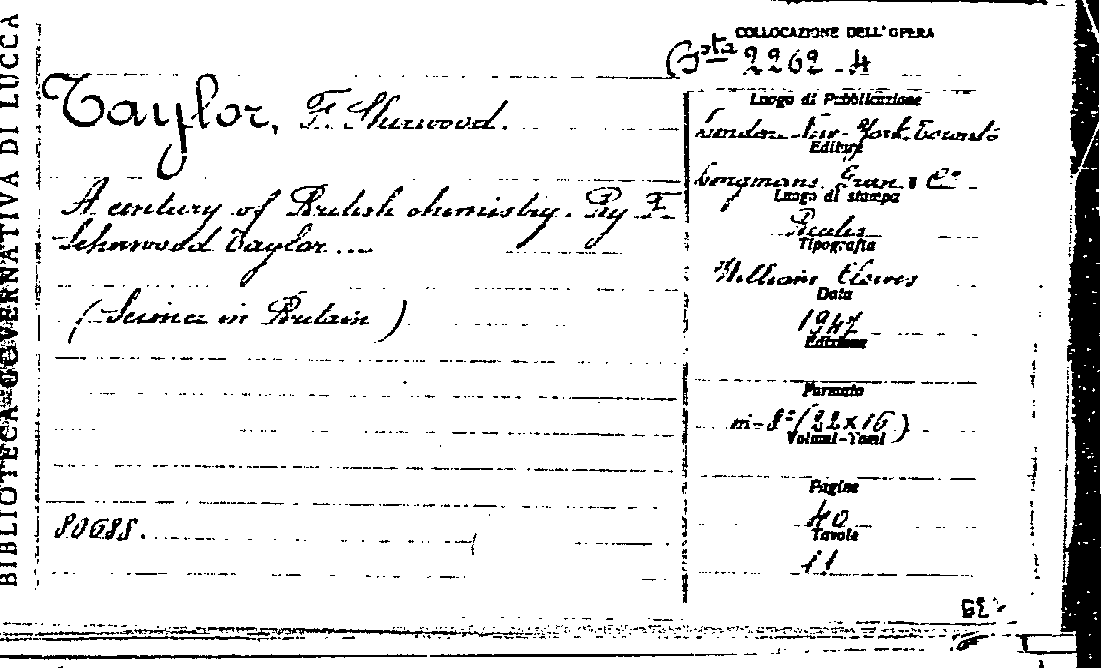 BIBLIOTECA GOVERNATIVA DI LUCCA
COLLOCAZIONE DELL'OPERA
Bsta 2262-4
Taylor, F. Sherwood.
A century of British chemistry. By F.
Scherwood Taylor...
(Science in Britain)
80688.
Luogo di Pubblicazione
London-New-York-Toronto
Editore
Longmans, Green & Co
Luogo di stampa
Beccles
Tipografia
William Clowes
Data
1947
Edizione
Formato
in-8°(22x16)
Volumi-Tomi
Pagine
40
Tavole
11